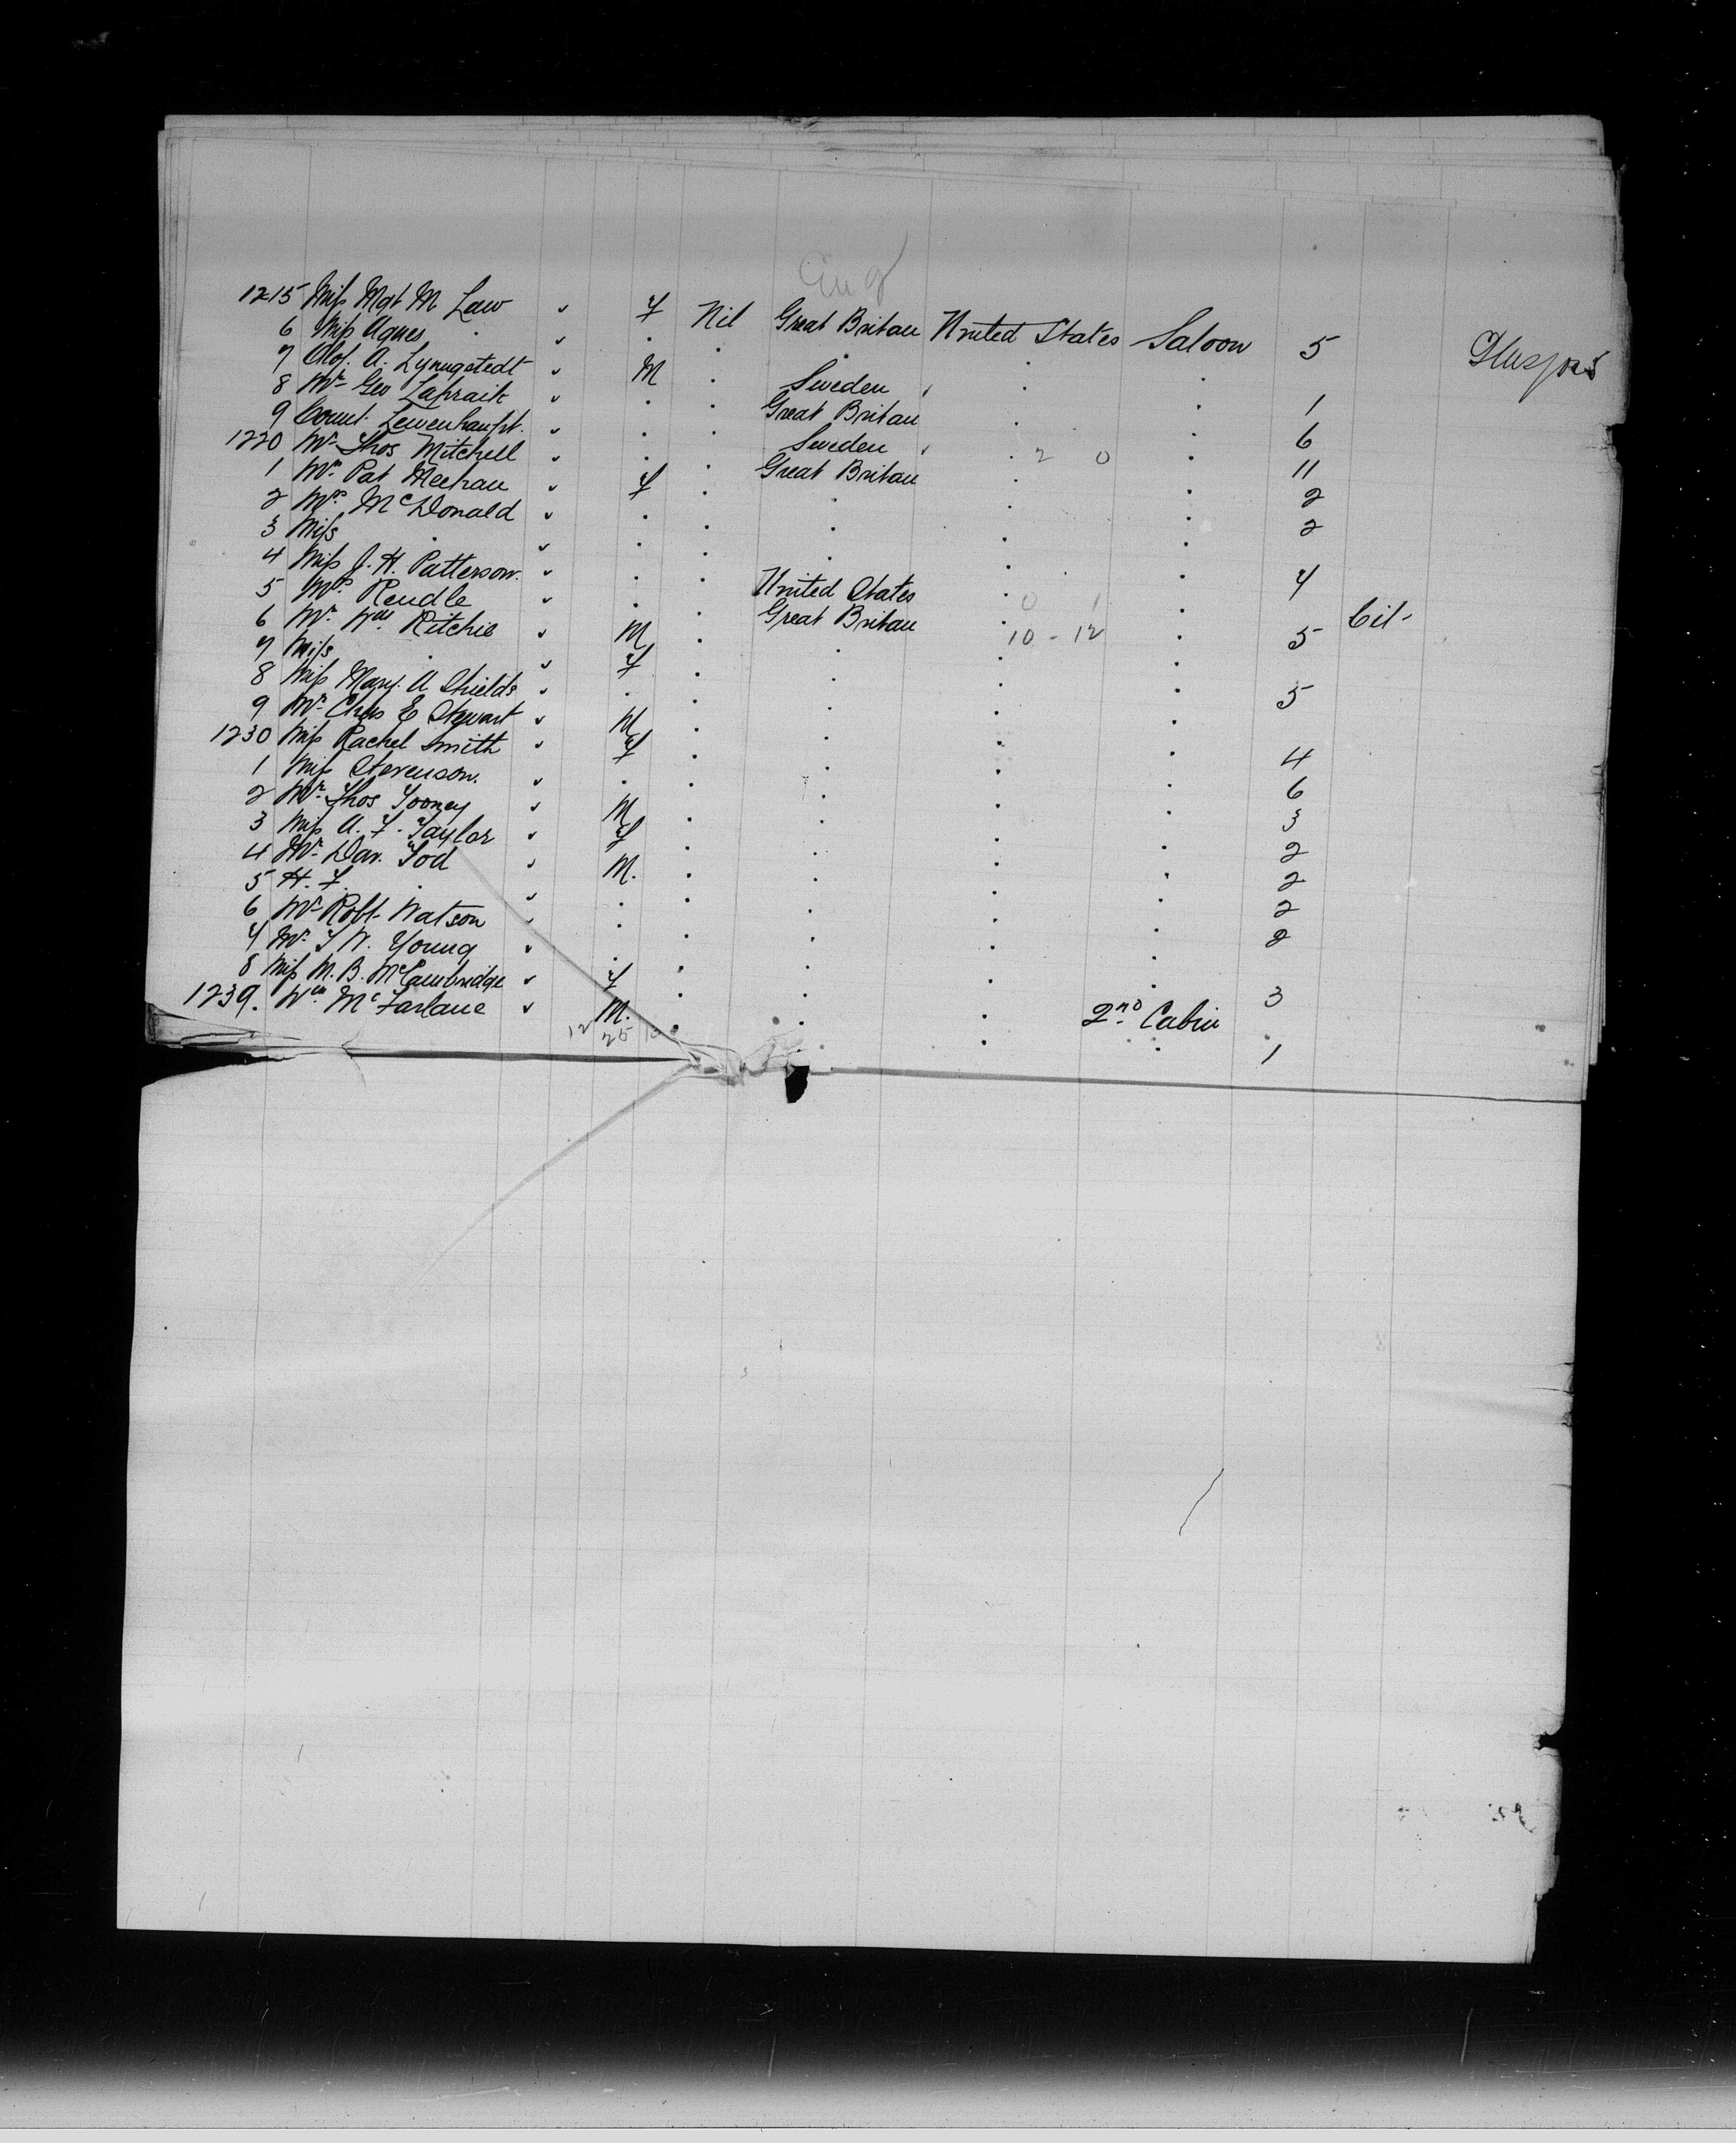 Eng
1215 Miss Mgt M Law " F Nil Great Britan United States Saloon 5 Glasgow
6 Miss Agnes . " . . . . .
7 Olof. A. Lynngstedt " M . Sweden . . 1
8 Mr Geo Lapraik " . . Great Britan . . 6
9 Count. Lewenhaupt. " . . Sweden . 2 0 . 11
1220 Mr Thos Mitchell " . . Great Britan . . 2
1 Mrs Pat Meehan " F . . . . 2
2 Mrs McDonald " . . . . .
3 Miss . " . . . . . 4
4 Miss J. H. Patterson. " . . United States . 0 1 . Cit-
5 Mrs Rendle " . . Great Britan 10 - 12 . 5
6 Mr Wm Ritchie " M . . . .
7 Miss . " F . . . . 5
8 Miss Mary. A Shields " . . . . .
9 Mr Chas E Stewart " M . . . . 4
1230 Miss Rachel Smith " F . . . . 6
1 Miss Stevenson. " . . . . . 3
2 Mr Thos Tooney " M . . . . 2
3 Miss A. F. Taylor " F . . . . 2
4 Mr Dav. Tod " M. . . . . 2
5 H. F. . " . . . . . 2
6 Mr Robt Watson " . . . . .
7 Mr T W. Young " . . . . . 3
8 Miss M. B. McCambridge " F . . . 2nd Cabin .
1239. Wm McFarlane " M. . . . . 1
12 25